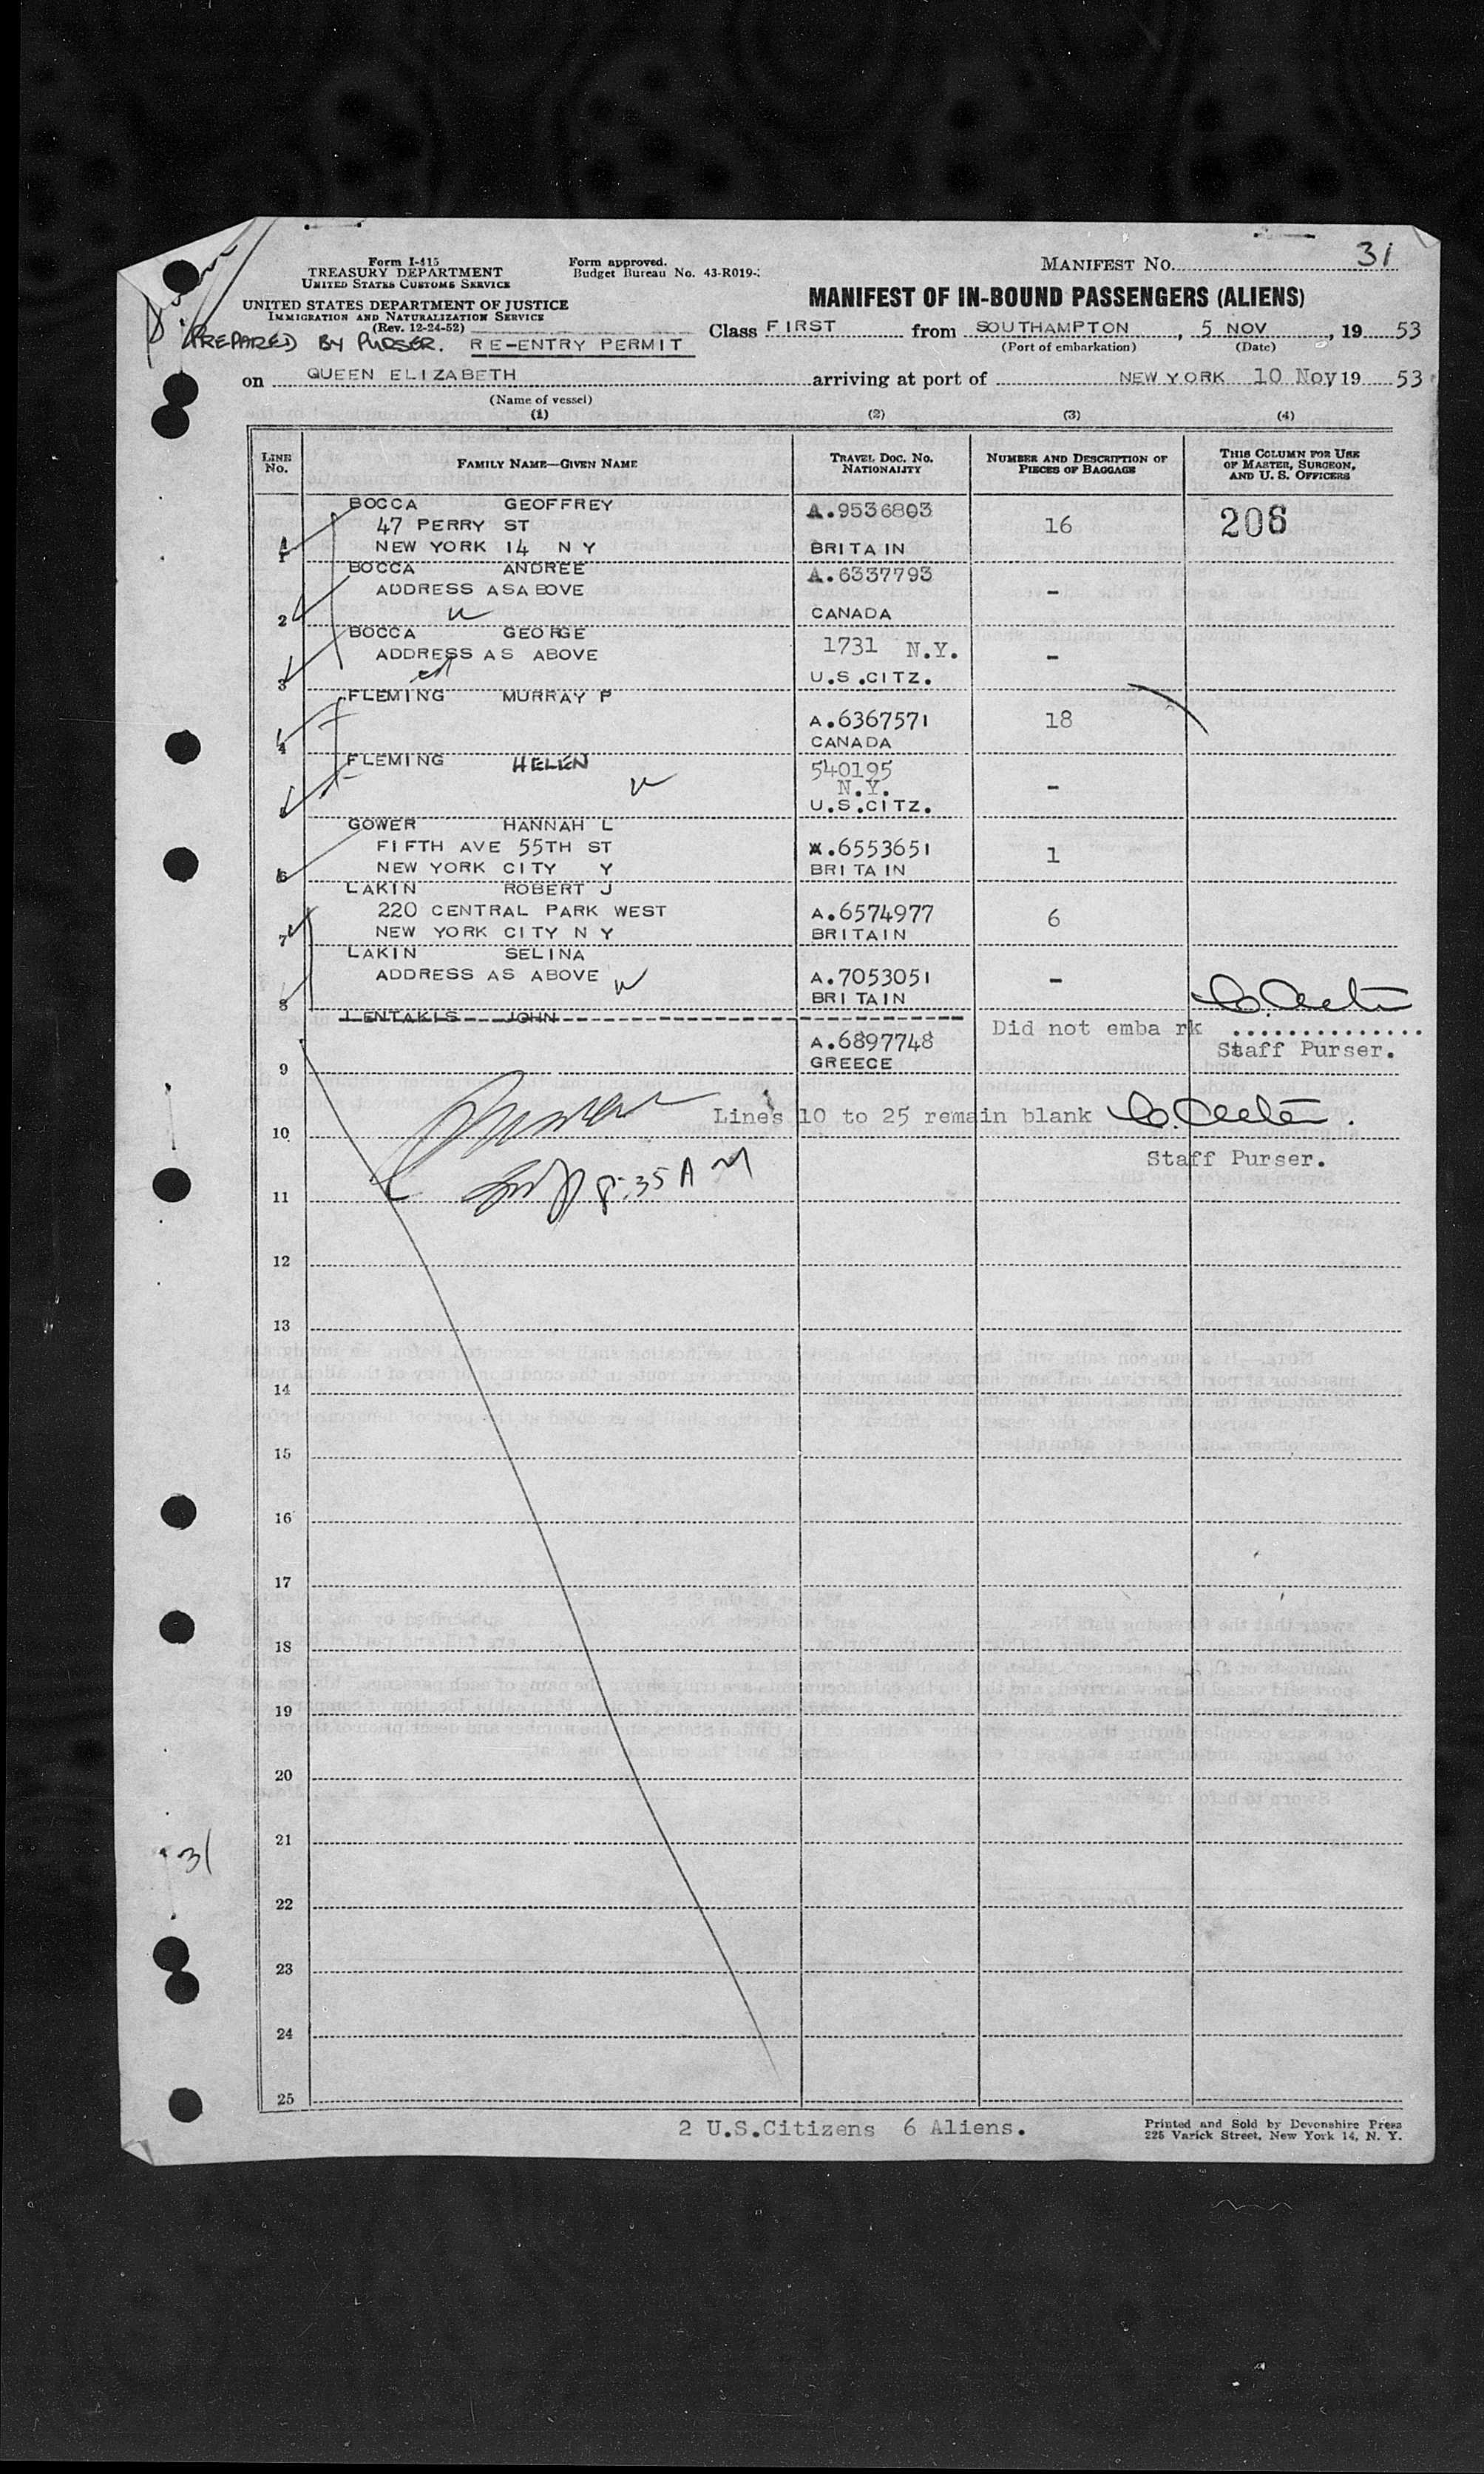 Form I-415
TREASURY DEPARTMENT
UNITED STATES CUSTOMS SERVICE
Form approved.
Budget Bureau No. 43-R019-
MANIFEST NO. 31
UNITED STATES DEPARTMENT OF JUSTICE
IMMIGRATION AND NATURALIZATION SERVICE
(Rev. 12-24-52)
MANIFEST OF IN-BOUND PASSENGERS (ALIENS)
PREPARED BY PURSER. RE-ENTRY PERMIT
Class FIRST from SOUTHAMPTON, 5 NOV, 1953
(Port of embarkation) (Date)
on QUEEN ELIZABETH arriving at port of NEW YORK 10 Nov 1953
(Name of vessel)
(1) (2) (3) (4)
LINE NO. FAMILY NAME—GIVEN NAME TRAVEL DOC. NO. NATIONALITY NUMBER AND DESCRIPTION OF PIECES OF BAGGAGE THIS COLUMN FOR USE OF MASTER, SURGEON, AND U. S. OFFICERS
BOCCA GEOFFREY A.9536803
47 PERRY ST 16 206
1 NEW YORK 14 N Y BRITAIN
BOCCA ANDREE A.6337793
ADDRESS ASABOVE -
2 CANADA
BOCCA GEORGE 1731 N.Y.
ADDRESS AS ABOVE -
3 U.S.CITZ.
FLEMING MURRAY P
A.6367571 18
4 CANADA
FLEMING HELEN 540195
N.Y. -
5 U.S.CITZ.
GOWER HANNAH L
FIFTH AVE 55TH ST A.6553651 1
6 NEW YORK CITY Y BRITAIN
LAKIN ROBERT J
220 CENTRAL PARK WEST A.6574977 6
7 NEW YORK CITY N Y BRITAIN
LAKIN SELINA
ADDRESS AS ABOVE A.7053051 -
8 BRITAIN
LENTAKIS JOHN
Did not emba rk ..............
A.6897748 Staff Purser.
9 GREECE
Lines 10 to 25 remain blank
10
Staff Purser.
8:35 A M
11
12
13
14
15
16
17
18
19
20
31
21
22
23
24
25
2 U.S.Citizens 6 Aliens.
Printed and Sold by Devonshire Press
225 Varick Street, New York 14, N. Y.